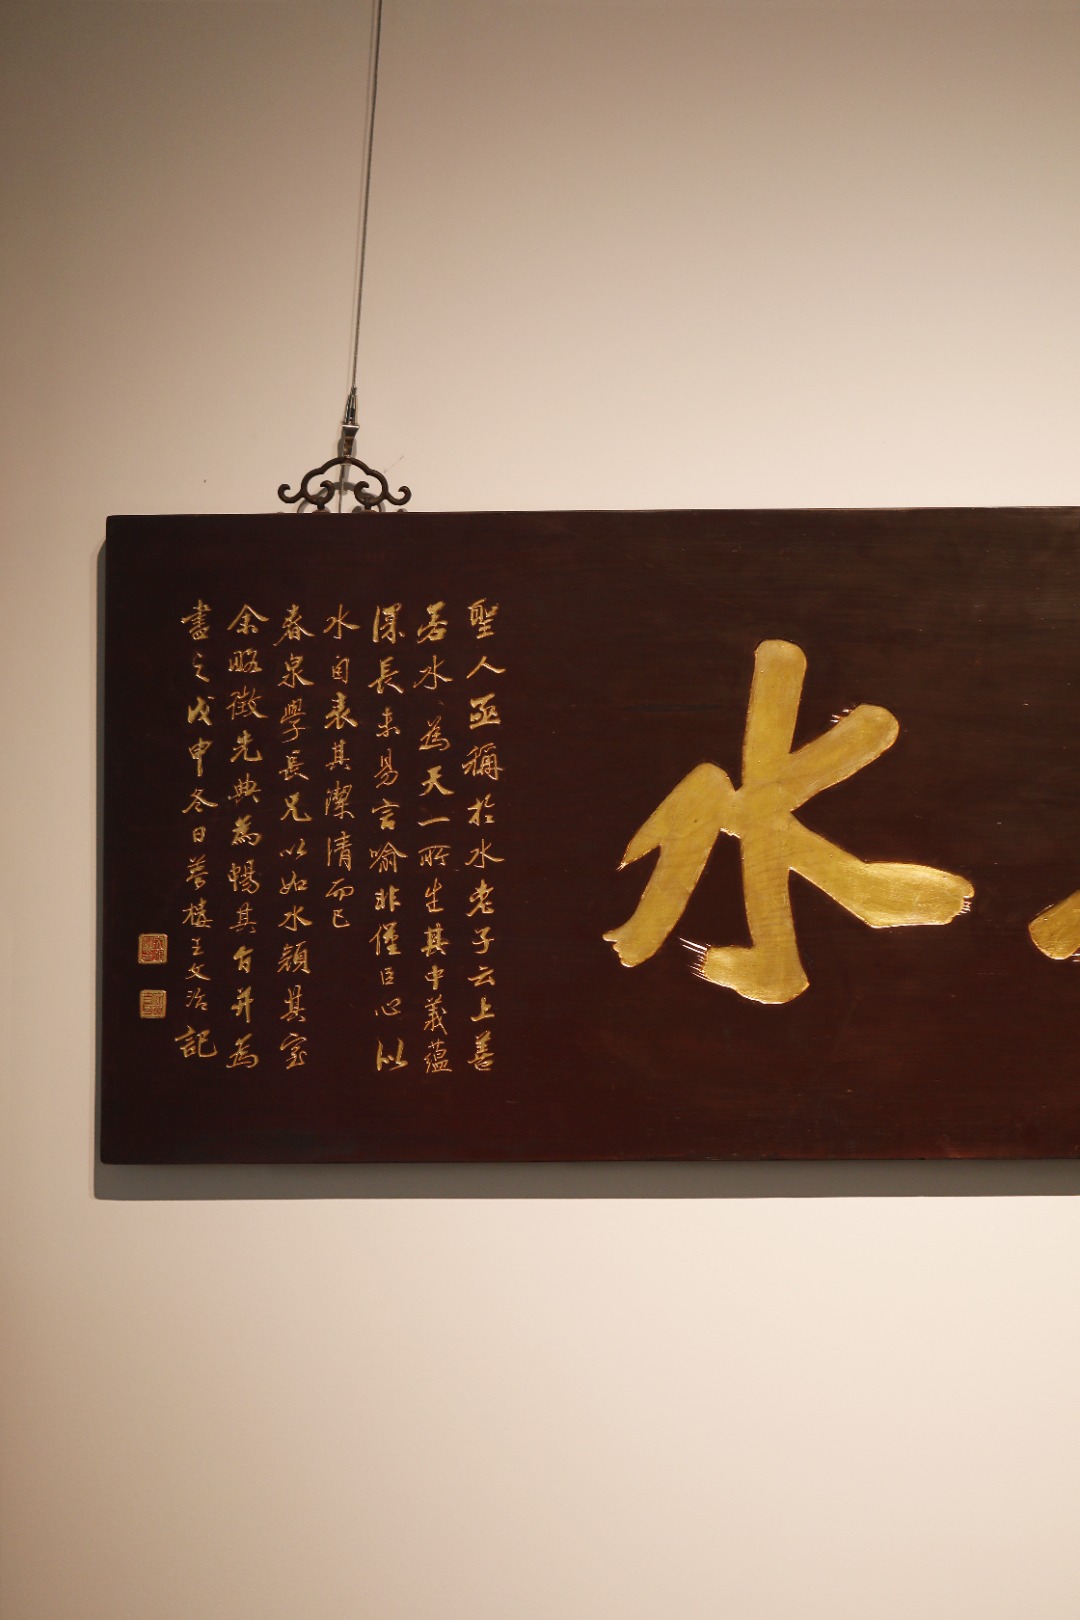 水
聖人亟稱於水老子云上善
若水、為天一所生其中義蘊
深長未易言喻非僅臣心以
水自表其潔清而已
春泉學長兄以如水顏其室
余略徵先典為暢其旨并為
書之戊申冬日夢樓王文治記